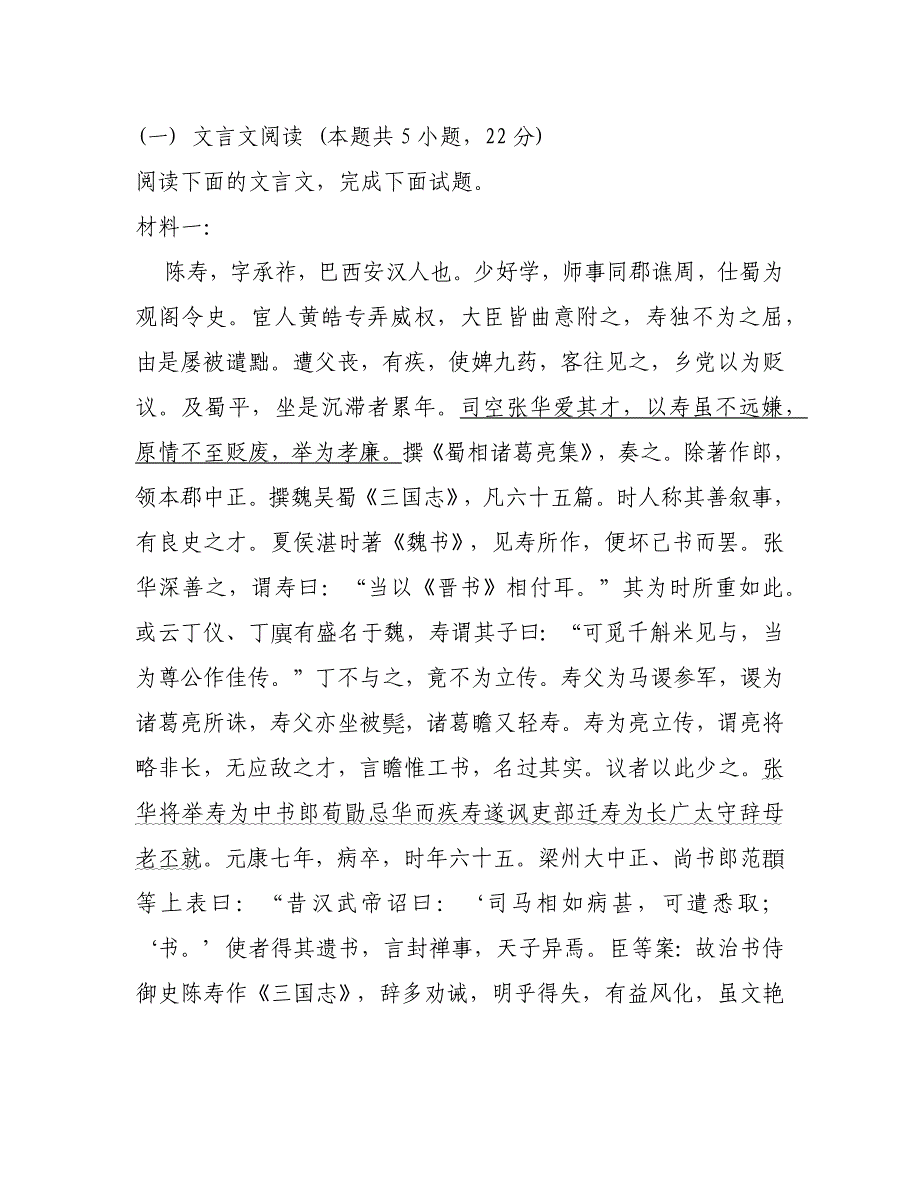 (一) 文言文阅读 (本题共 5 小题，22 分)
阅读下面的文言文，完成下面试题。
材料一：
陈寿，字承祚，巴西安汉人也。少好学，师事同郡谯周，仕蜀为
观阁令史。宦人黄皓专弄威权，大臣皆曲意附之，寿独不为之屈，
由是屡被谴黜。遭父丧，有疾，使婢九药，客往见之，乡党以为贬
议。及蜀平，坐是沉滞者累年。司空张华爱其才，以寿虽不远嫌，
原情不至贬废，举为孝廉。撰《蜀相诸葛亮集》，奏之。除著作郎，
领本郡中正。撰魏吴蜀《三国志》，凡六十五篇。时人称其善叙事，
有良史之才。夏侯湛时著《魏书》，见寿所作，便坏己书而罢。张
华深善之，谓寿曰：“当以《晋书》相付耳。”其为时所重如此。
或云丁仪、丁廙有盛名于魏，寿谓其子曰：“可觅千斛米见与，当
为尊公作佳传。”丁不与之，竟不为立传。寿父为马谡参军，谡为
诸葛亮所诛，寿父亦坐被髡，诸葛瞻又轻寿。寿为亮立传，谓亮将
略非长，无应敌之才，言瞻惟工书，名过其实。议者以此少之。张
华将举寿为中书郎荀勖忌华而疾寿遂讽吏部迁寿为长广太守辞母
老丕就。元康七年，病卒，时年六十五。梁州大中正、尚书郎范頵
等上表曰：“昔汉武帝诏曰：‘司马相如病甚，可遣悉取；
‘书。’使者得其遗书，言封禅事，天子异焉。臣等案：故治书侍
御史陈寿作《三国志》，辞多劝诫，明乎得失，有益风化，虽文艳